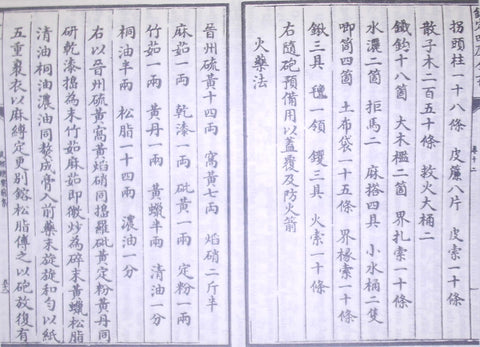 欽定四庫全書
卷十二
拐頭柱一十八條 皮簾八片 皮索一十條
散子木二百五十條 救火大桶二
鐵鈎十八箇 大木檻二箇 界扎索一十條
水濃二箇 拒馬二 麻搭四具 小水桶二隻
唧筒四箇 土布袋一十五條 界椽索一十條
鍬三具 氊一領 钁三具 火索一十條
右隨砲預備用以蓋覆及防火箭
火藥法
晉州硫黄十四兩 窩黄七兩 焰硝二斤半
麻茹一兩 乾漆一兩 砒黄一兩 定粉一兩
竹茹一兩 黄丹一兩 黄蠟半兩 清油一分
桐油半兩 松脂一十四兩 濃油一分
右以晉州硫黄窩黄焰硝同搗羅砒黄定粉黄丹同
研乾漆搗為末竹茹麻茹即微炒為碎末黄蠟松脂
清油桐油濃油同熬成膏入前藥末旋旋和匀以紙
五重裹衣以麻縛定更别鎔松脂傅之以砲放復有